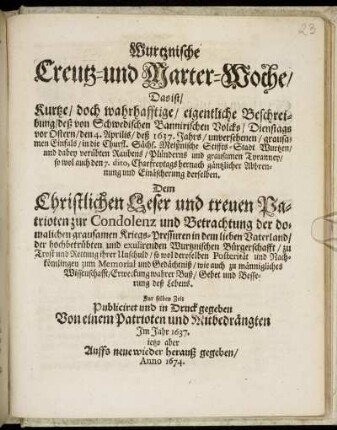 23
Wurtznische
Creutz-und Marter-Woche/
Das ist/
Kurtze/ doch wahrhafftige/ eigentliche Beschrei-
bung/ deß von Schwedischen Bannirischen Volcks/ Dienstags
vor Ostern/ den 4. Aprilis/ deß 1637. Jahrs/ unversehenen/ grausa-
men Einfals/ in die Churfl. Sächs. Meißnische Stiffts-Stadt Wurtzen/
und dabey verübten Raubens/ Plünderns und grausamen Tyranney/
so wol auch den 7. dito, Charfreytags hernach gäntzlicher Abbren-
nung und Einäscherung derselben.
Dem
Christlichen Leser und treuen Pa-
trioten zur Condolenz und Betrachtung der do-
maligen grausamen Kriegs-Pressuren in dem lieben Vaterland/
der hochbetrübten und exulirenden Wurtznischen Bürgerschafft/ zu
Trost und Rettung ihrer Unschuld/ so wol derselben Posterität und Nach-
kömlingen zum Memorial und Gedächtniß/ wie auch zu männigliches
Wissenschafft/ Erweckung wahrer Buß/ Gebet und Besse-
rung deß Lebens.
Zur selben Zeit
Publiciret und in Druck gegeben
Von einem Patrioten und Mitbedrängten
Im Jahr 1637.
ietzo aber
Auffs neue wieder herauß gegeben/
Anno 1674.